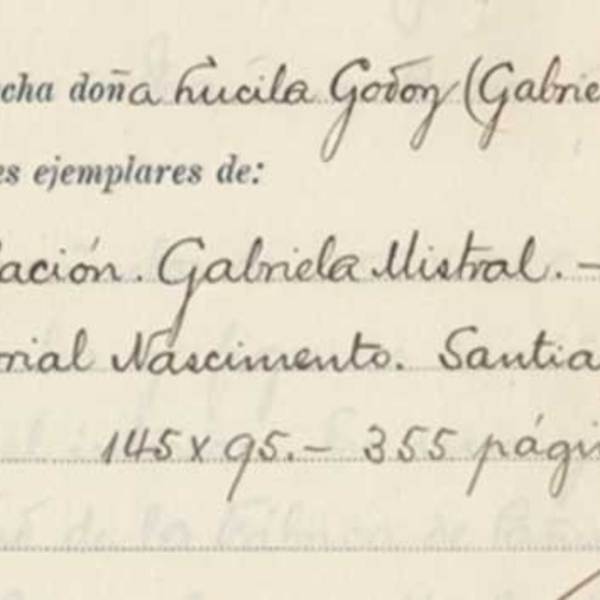 cha doña Lucila Godoy (Gabrie
es ejemplares de:
lación. Gabriela Mistral. —
rial Nascimento. Santia
145 x 95. — 355 pági